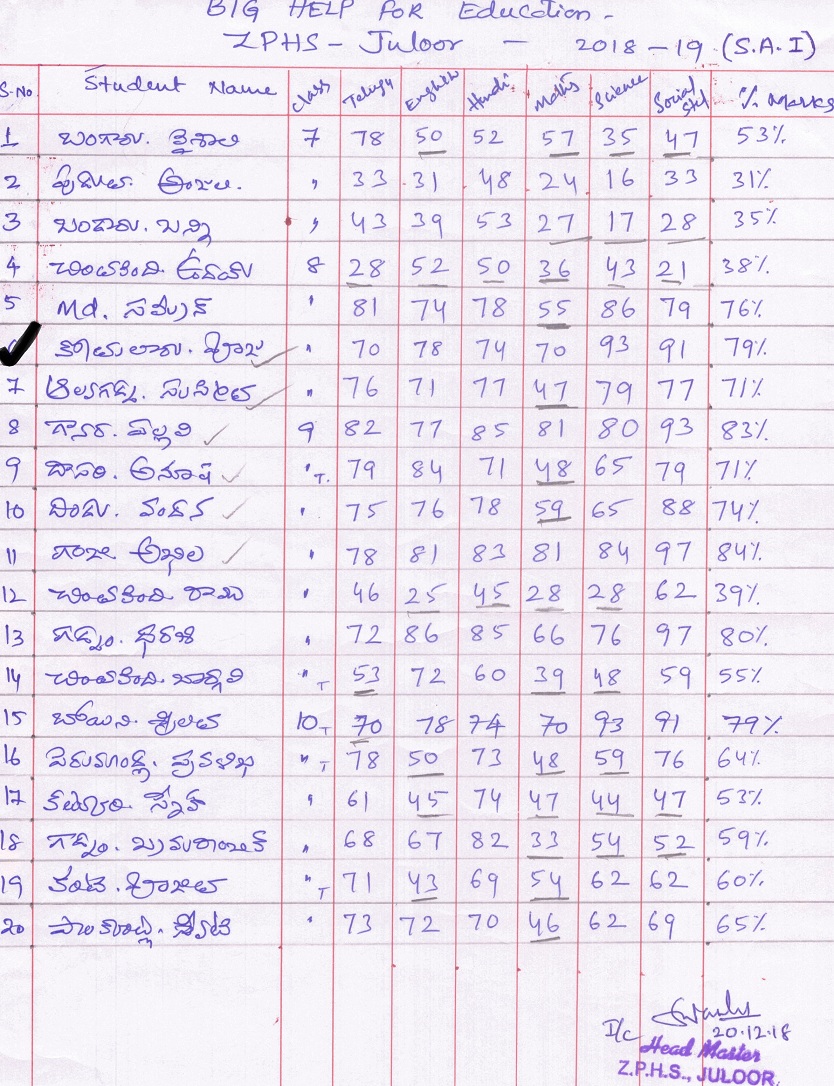 BIG HELP FOR Education -
ZPHS - Juloor - 2018-19 (S.A.I)
S.No Student Name Class Telugu English Hindi Maths Science Social Std % Marks
1 బంగారు. వైశాలి 7 78 50 52 57 35 47 53%
2 అంజలి. " 33 31 48 24 16 33 31%
3 బండారు. బన్ని " 43 39 53 27 17 28 35%
4 చింతకింది. ఉదయ్ 8 28 52 50 36 43 21 38%
5 Md. సమీర్ " 81 74 78 55 86 79 76%
" 70 78 74 70 93 91 79%
7 " 76 71 77 47 79 77 71%
8 పల్లవి 9 82 77 85 81 80 93 83%
9 దాసరి. అనూష " T. 79 84 71 48 65 79 71%
10 దిండు. వందన " 75 76 78 59 65 88 74%
11 గంజి అఖిల " 78 81 83 81 84 97 84%
12 చింతకింది రాము " 46 25 45 28 28 62 39%
13 గడ్డం. ధరణి " 72 86 85 66 76 97 80%
14 చింతకింది. భార్గవి " T 53 72 60 39 48 59 55%
15 బోయిని. శ్రీలత 10 T 70 78 74 70 93 91 79%
16 " T 78 50 73 48 59 76 64%
17 " 61 45 74 47 44 47 53%
18 గడ్డం. " 68 67 82 33 54 52 59%
19 " T 71 43 69 54 62 62 60%
20 " 73 72 70 46 62 69 65%
I/c 20.12.18
Head Master
Z.P.H.S., JULOOR.